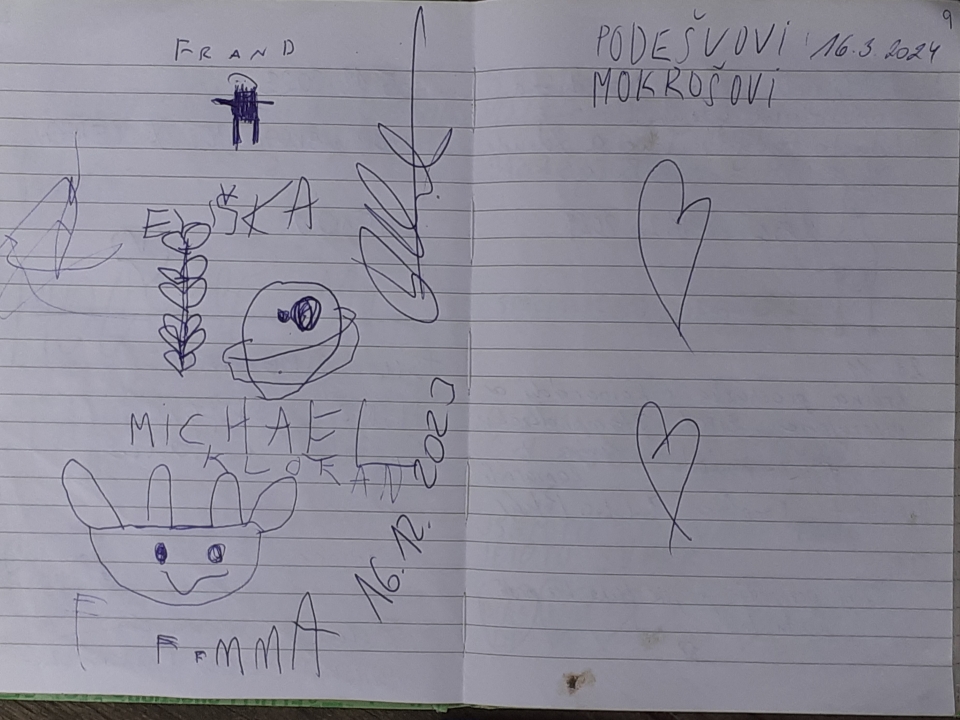 FRAND
ELIŠKA
MICHAEL
KLOKAN
16.12. 2023
EMMA
9
PODEŠVOVI 16.3.2024
MOKROŠOVI